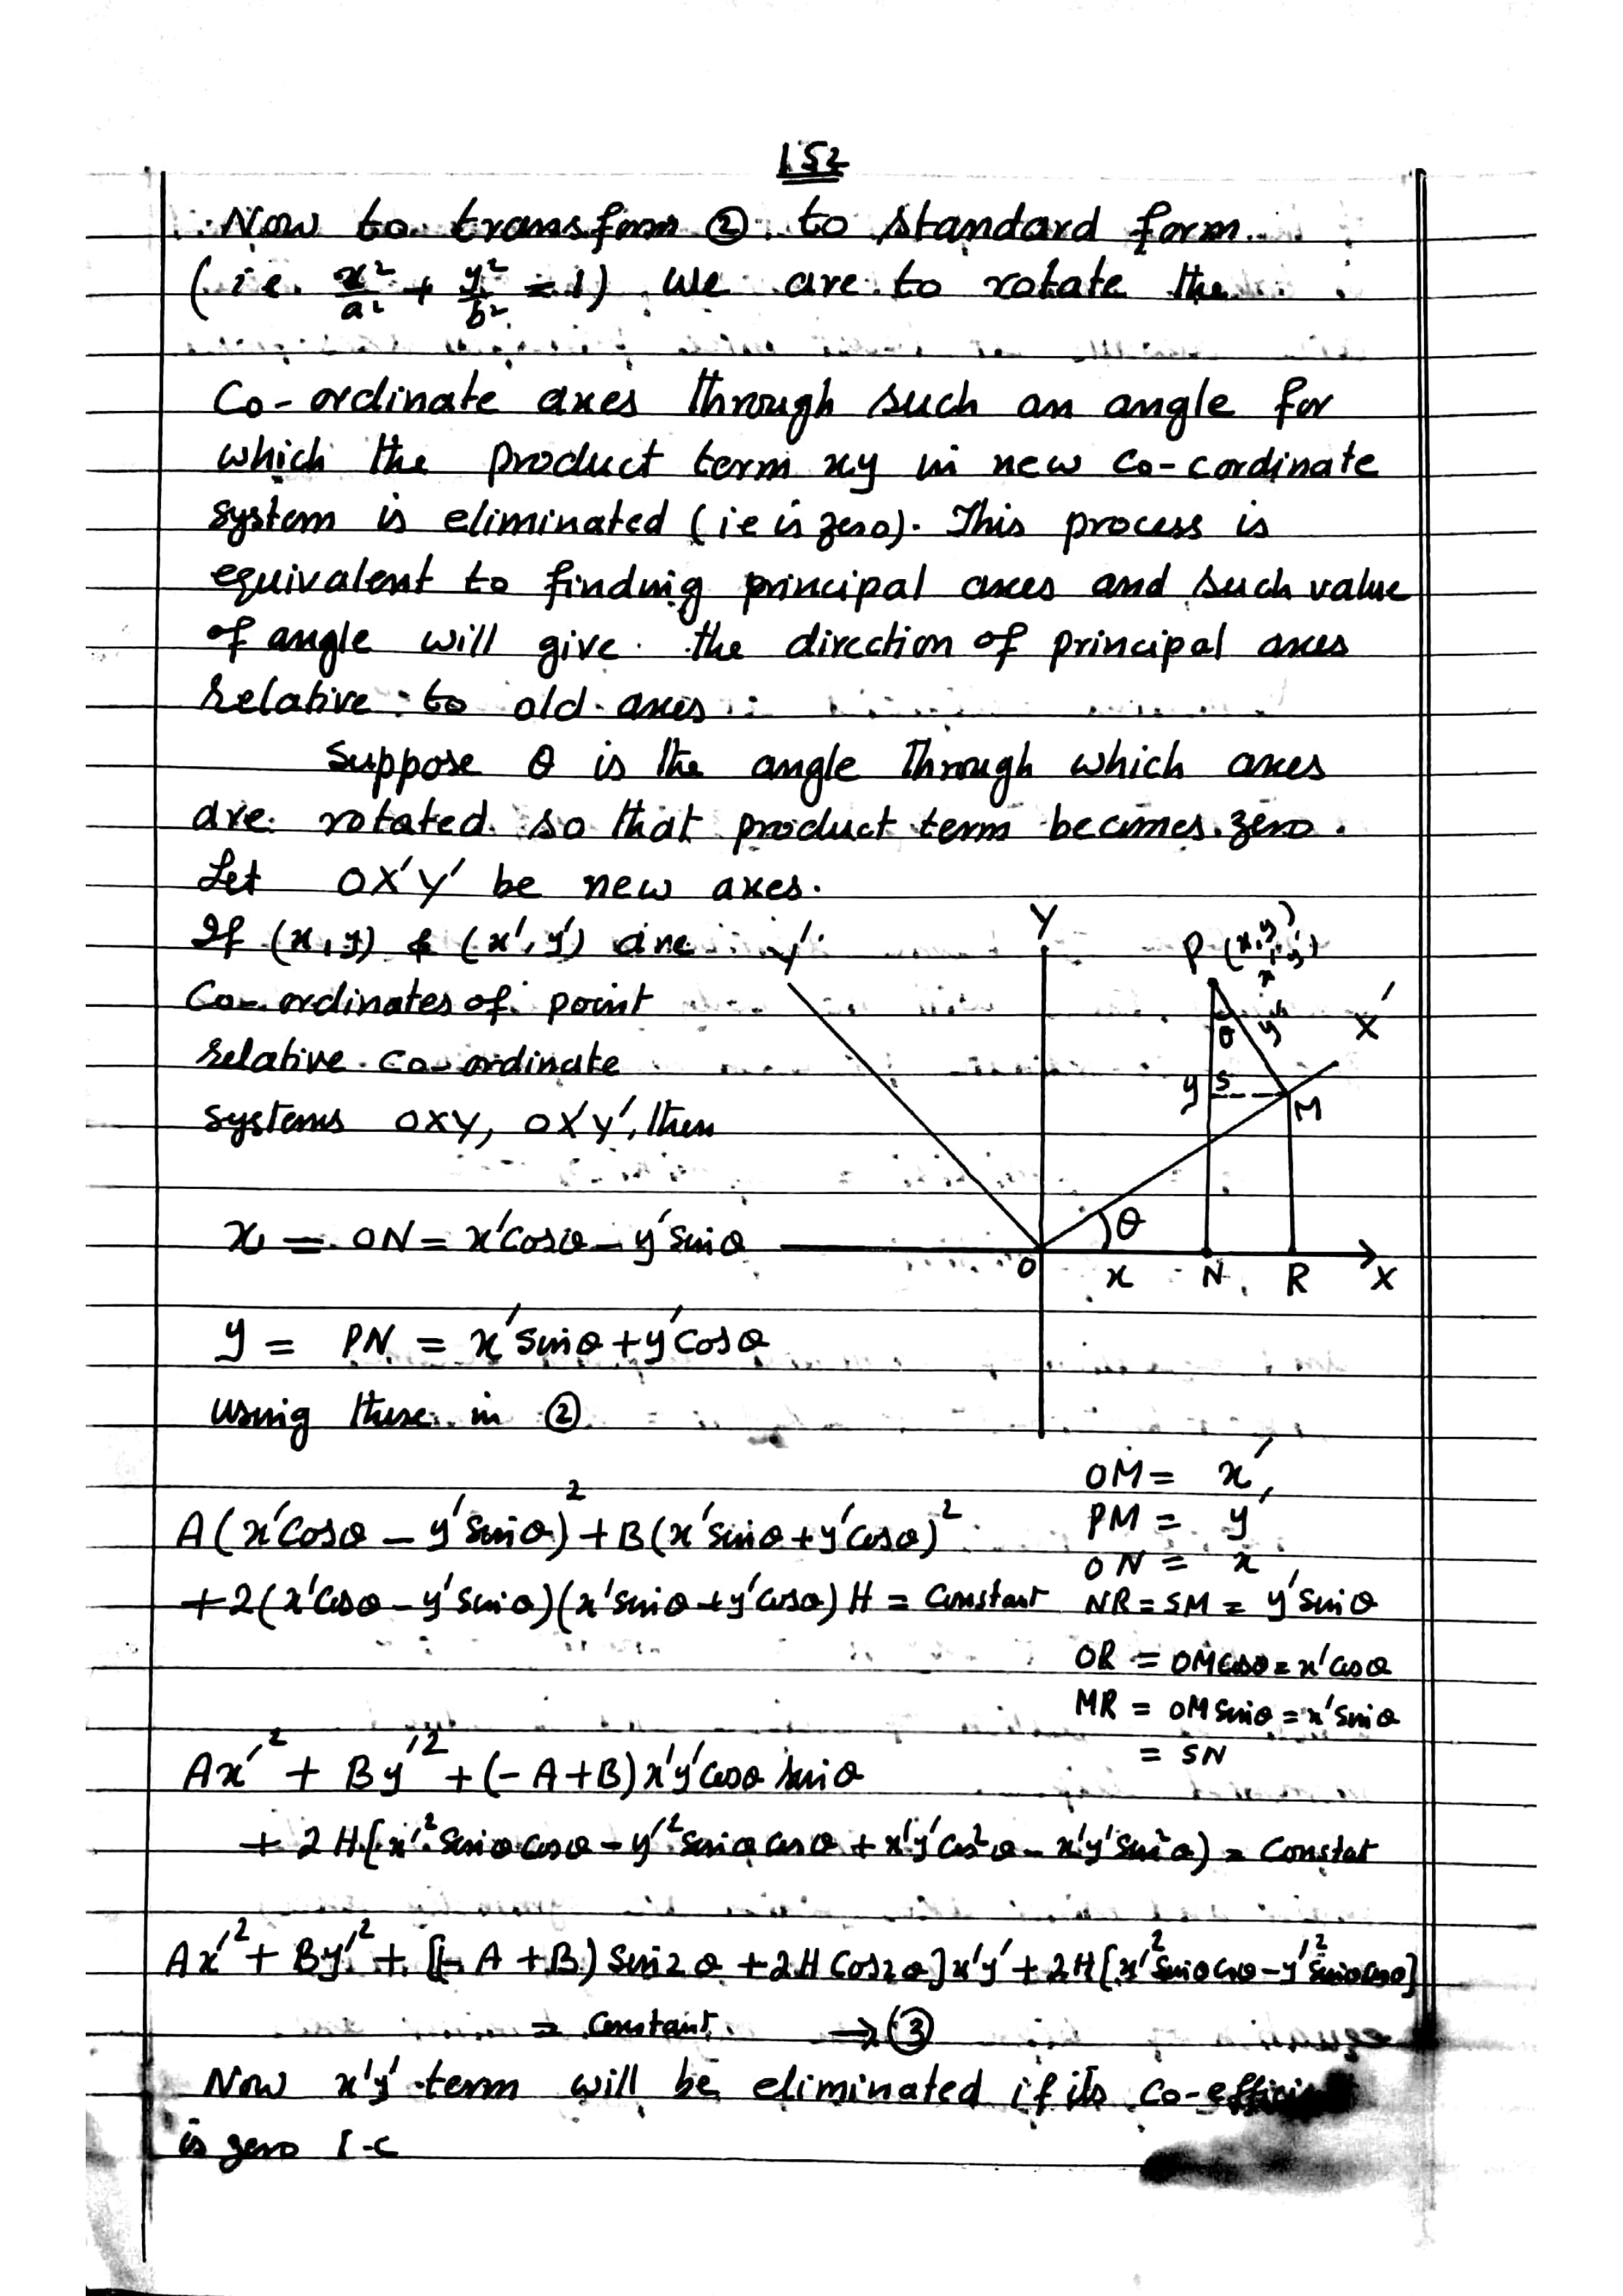 152
Now to transform ② to standard form
(i.e. x²/a² + y²/b² = 1) we are to rotate the
Co-ordinate axes through such an angle for
which the product term xy in new co-cordinate
system is eliminated (i.e is zero). This process is
equivalent to finding principal axes and such value
of angle will give the direction of principal axes
relative to old axes
Suppose θ is the angle through which axes
are rotated so that product term becomes zero.
Let OX'Y' be new axes.
If (x,y) & (x',y') are
Co-ordinates of point
relative co-ordinate
systems OXY, OX'Y', then
x = ON = x'cosθ - y'sinθ
y = PN = x'sinθ + y'cosθ
using these in ②
Y
Y'
P (x,y)
x',y')
X'
θ
y'
y
S
M
θ
O
x
N
R
X
OM = x'
PM = y'
ON = x
NR = SM = y'sinθ
OR = OMcosθ = x'cosθ
MR = OMsinθ = x'sinθ
= SN
A(x'cosθ - y'sinθ)² + B(x'sinθ + y'cosθ)²
+2(x'cosθ - y'sinθ)(x'sinθ + y'cosθ) H = Constant
Ax'² + By'² + (-A+B)x'y'cosθ sinθ
+ 2H[x'²sinθcosθ - y'²sinθcosθ + x'y'cos²θ - x'y'sin²θ) = Constat
Ax'² + By'² + [(-A+B) sin2θ + 2H cos2θ]x'y' + 2H[x'²sinθcosθ - y'²sinθcosθ]
= Constant. → ③
Now x'y' term will be eliminated if its
is zero I-e